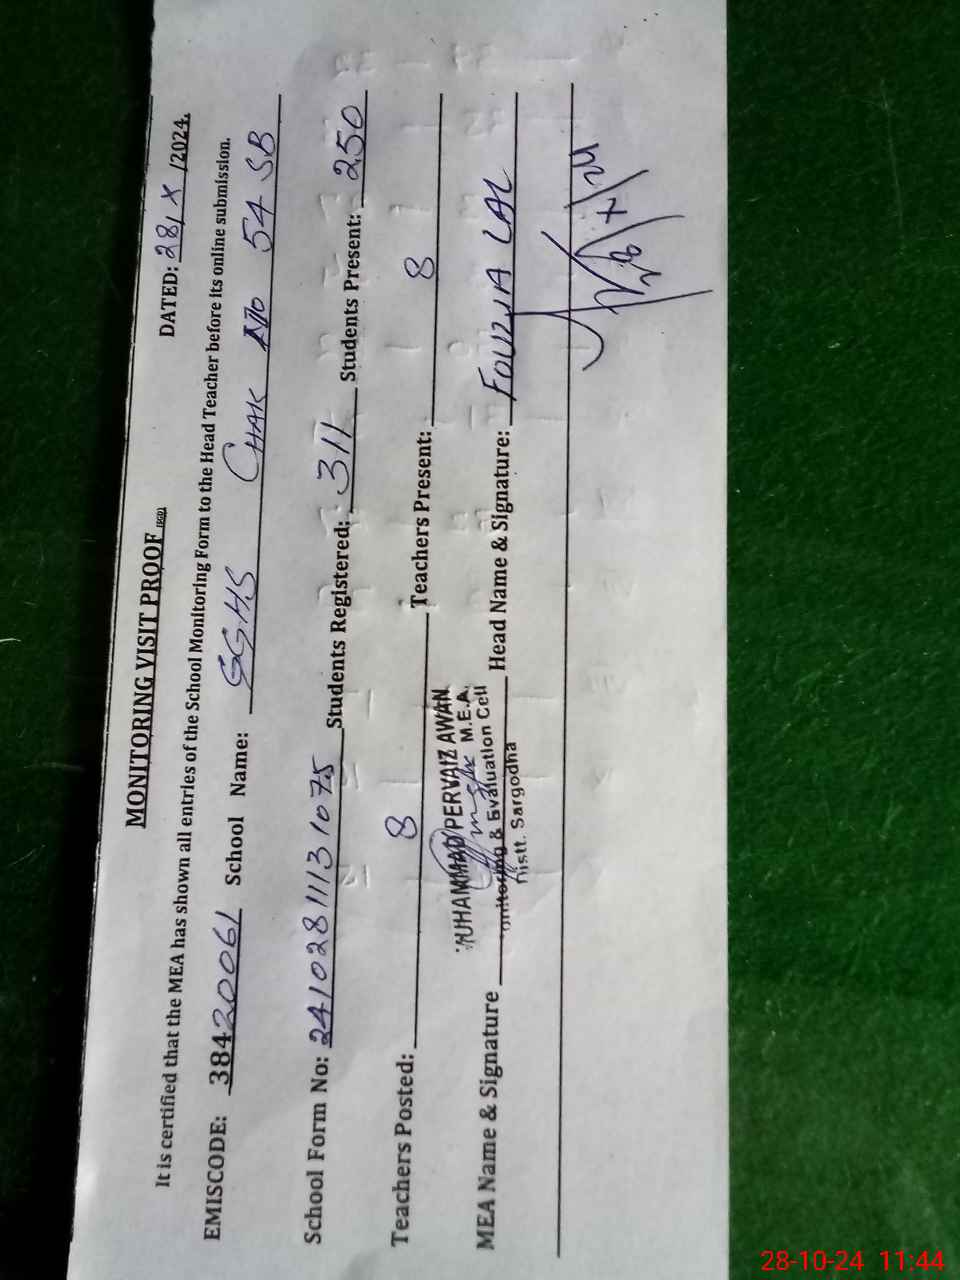 MONITORING VISIT PROOF (SGD)
DATED: 28/ X /2024.
It is certified that the MEA has shown all entries of the School Monitoring Form to the Head Teacher before its online submission.
EMISCODE: 38420061 School Name: GGHS CHAK No 54 SB
School Form No: 24102811131075 Students Registered: 311 Students Present: 250
Teachers Posted: 8 Teachers Present: 8
MUHAMMAD PERVAIZ AWAN
M.E.A.
MEA Name & Signature Monitoring & Evaluation Cell Head Name & Signature: FOUZIA LAL
Distt. Sargodha
28/X/24
28-10-24 11:44